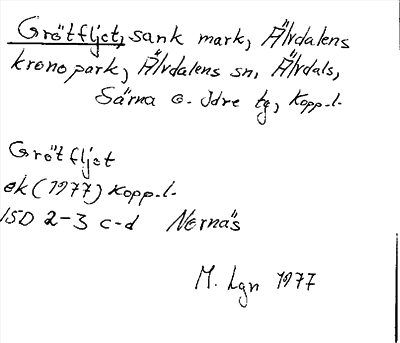 Grötfljot, sank mark, Älvdalens
kronopark, Älvdalens sn, Älvdals,
Särna o. Idre tg, Kopp. l.
Grötfljot
ek (1977) Kopp. l.
15D 2-3 c-d Nornäs
M. Lgn 1977